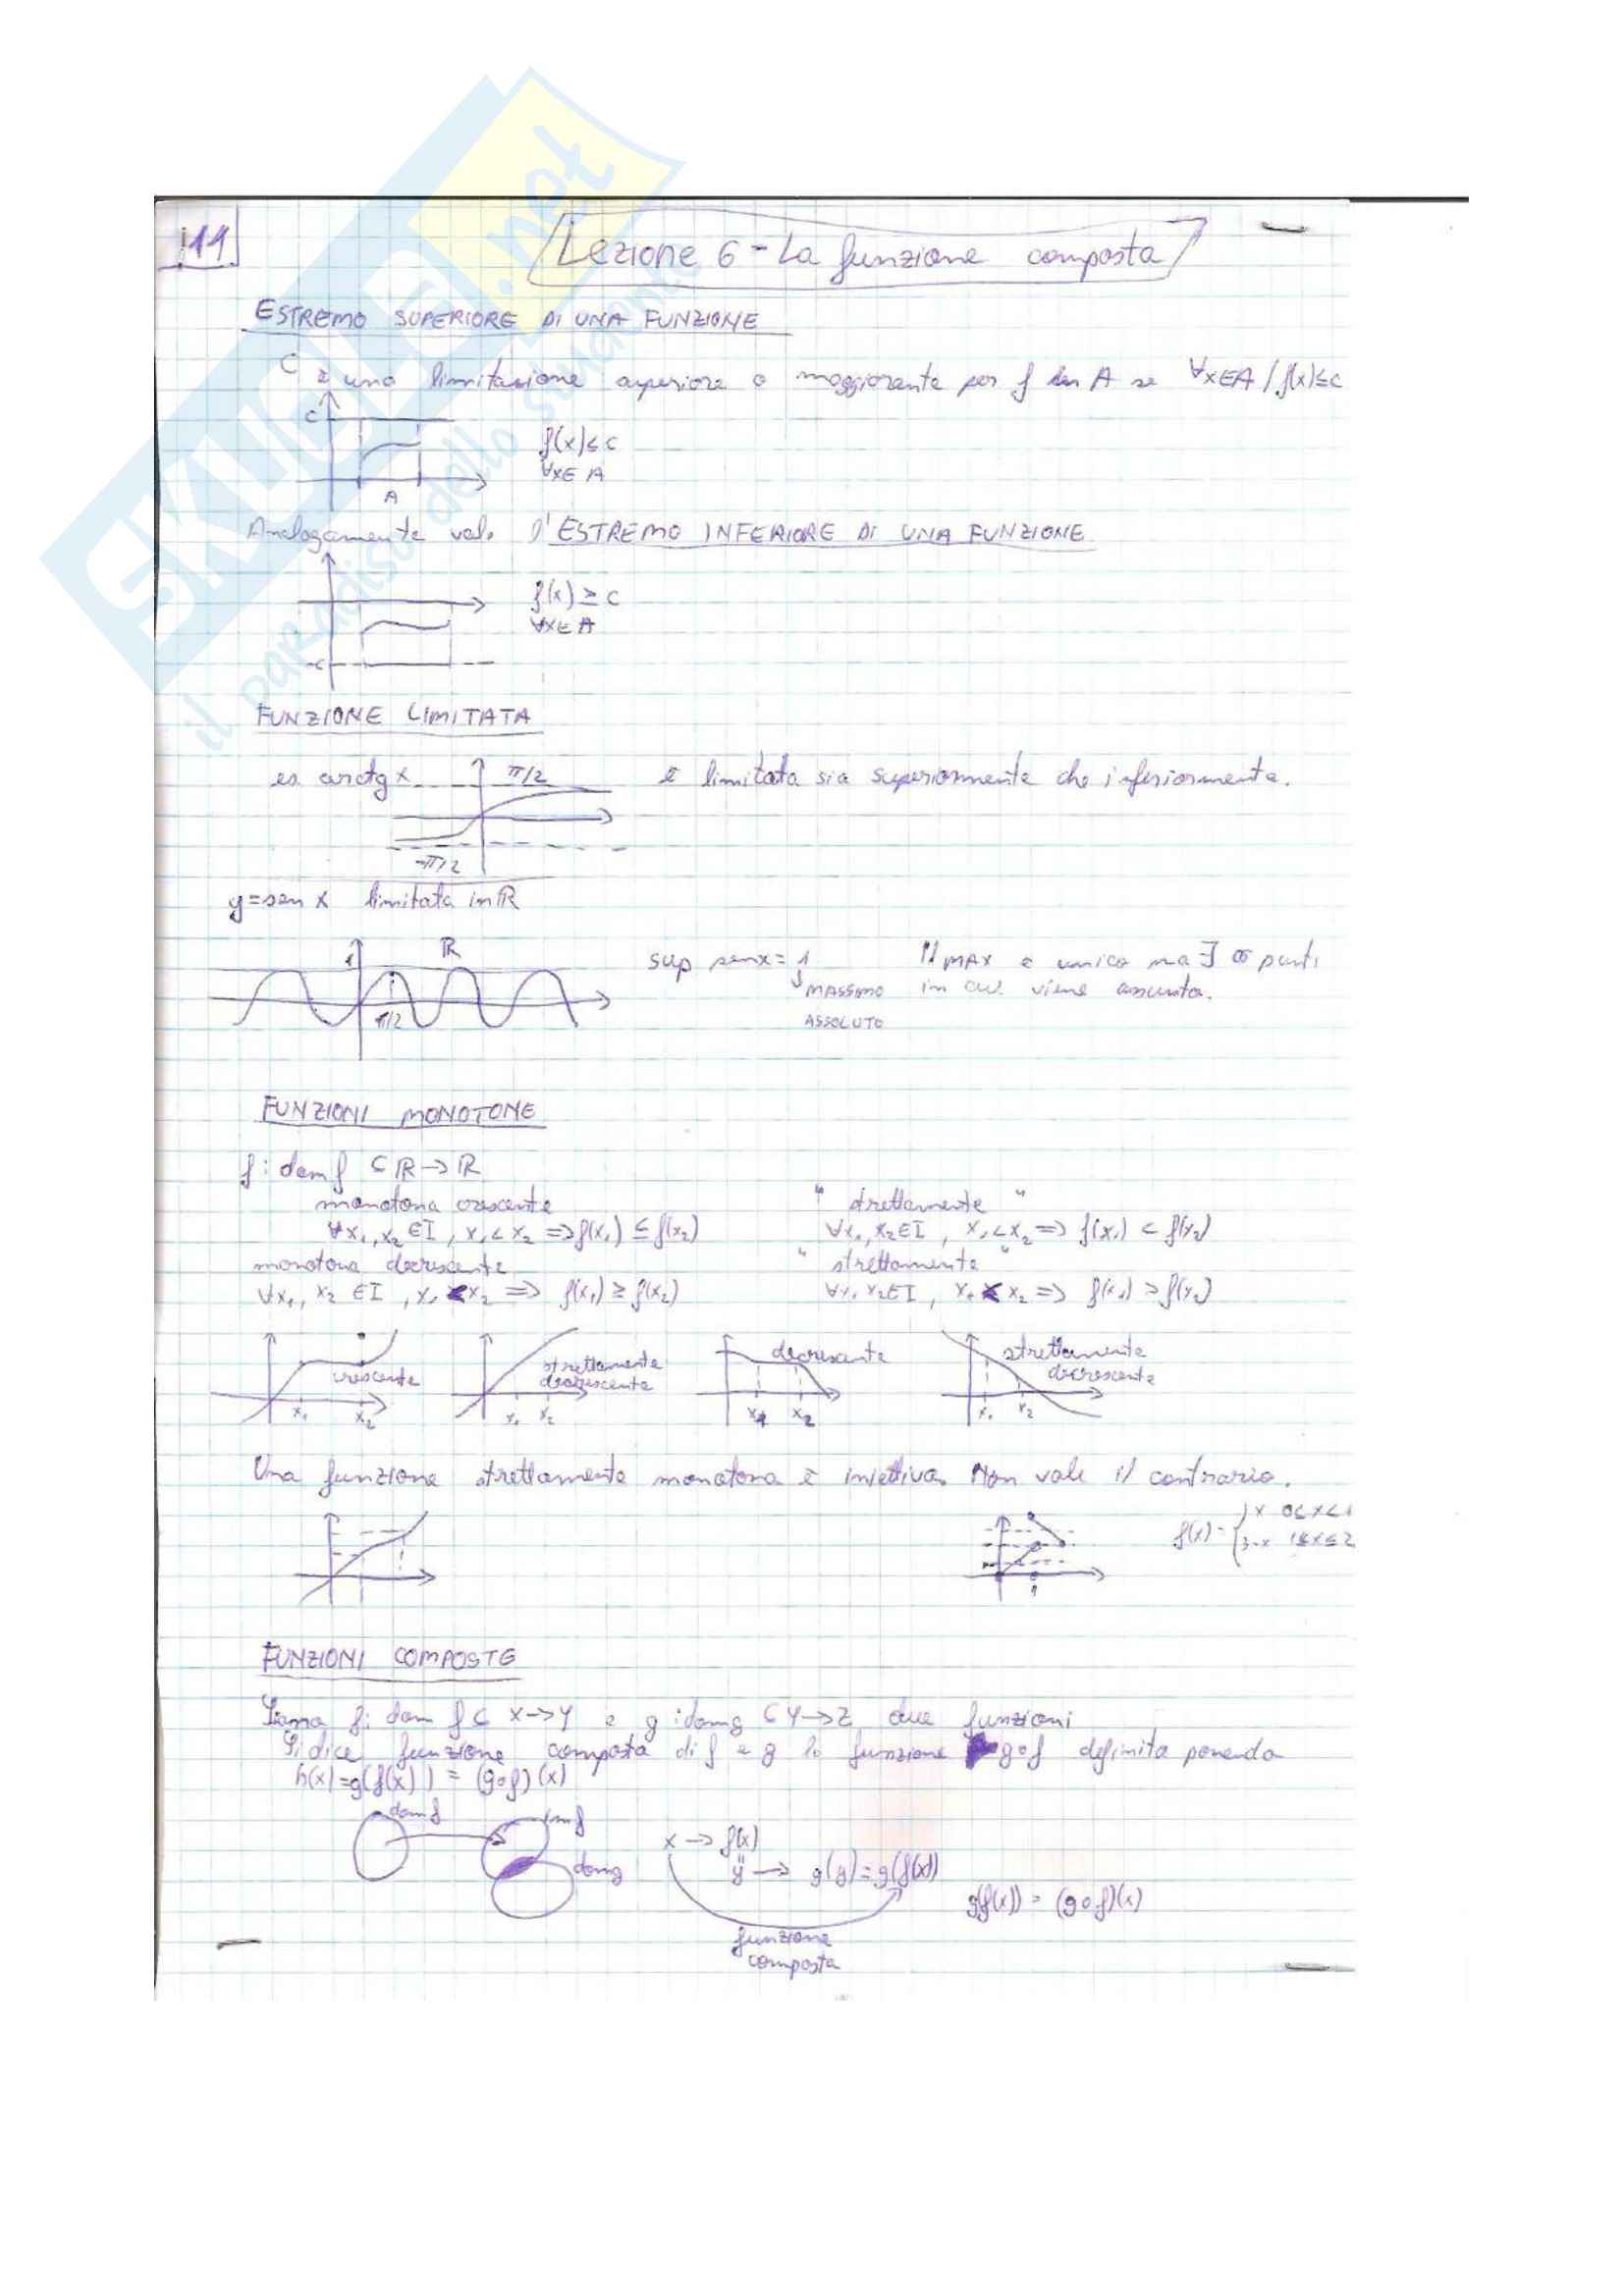 11
Lezione 6 - La funzione composta
ESTREMO SUPERIORE DI UNA FUNZIONE
C è una limitazione superiore o maggiorante per f in A se ∀x∈A / f(x)≤c
C
f(x)≤c
∀x∈A
A
Analogamente vale l'ESTREMO INFERIORE DI UNA FUNZIONE
f(x)≥c
∀x∈A
-c
FUNZIONE LIMITATA
es. arctg x π/2 è limitata sia superiormente che inferiormente.
-π/2
y=sen x limitata in ℝ
1 ℝ
π/2
sup senx = 1 Il MAX è unico ma ∃ ∞ punti
MASSIMO in cui viene assunto.
ASSOLUTO
FUNZIONI MONOTONE
f: dom f ⊂ ℝ→ℝ
monotona crescente " strettamente "
∀x₁,x₂∈I, x₁<x₂ => f(x₁)≤f(x₂) ∀x₁,x₂∈I, x₁<x₂ => f(x₁)<f(x₂)
monotona decrescente " strettamente "
∀x₁,x₂∈I, x₁<x₂ => f(x₁)≥f(x₂) ∀x₁,x₂∈I, x₁<x₂ => f(x₁)>f(x₂)
crescente
x₁ x₂
strettamente
x₁ x₂
decrescente
x₁ x₂
strettamente
decrescente
x₁ x₂
Una funzione strettamente monotona è iniettiva. Non vale il contrario.
f(x)= { x 0≤x<1
3-x 1≤x≤2
1
FUNZIONI COMPOSTE
Siano f: dom f ⊂ X→Y e g: dom g ⊂ Y→Z due funzioni
Si dice funzione composta di f e g la funzione g∘f definita ponendo
h(x)=g(f(x)) = (g∘f)(x)
dom f
im f
dom g
x → f(x)
y → g(y)=g(f(x))
g(f(x)) = (g∘f)(x)
funzione
composta
SKUOLA.net
il paradiso dello studente